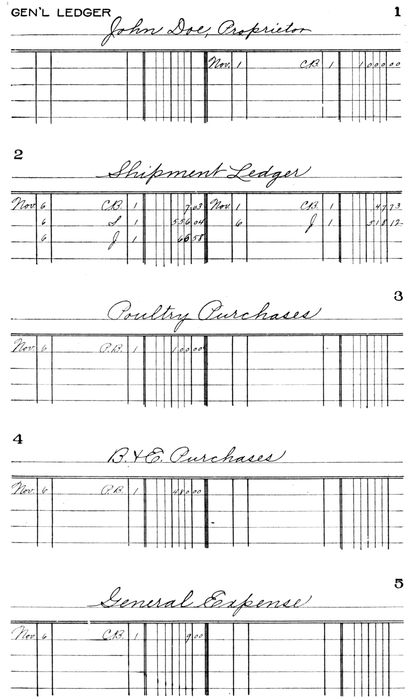 GEN'L LEDGER 1
John Doe, Proprietor
Nov. 1 C.B. 1 1 0 0 0 0 0
2
Shipment Ledger
Nov 6 C.B. 1 7 03 Nov 1 C.B. 1 47 73
6 S 1 536 04 6 J 1 518 12
6 J 1
3
Poultry Purchases
Nov 6 P.B. 1 1 0 0 00
4
B. & E. Purchases
Nov. 6 P.B. 1 480 00
5
General Expense
Nov 6 C.B. 1 9 00